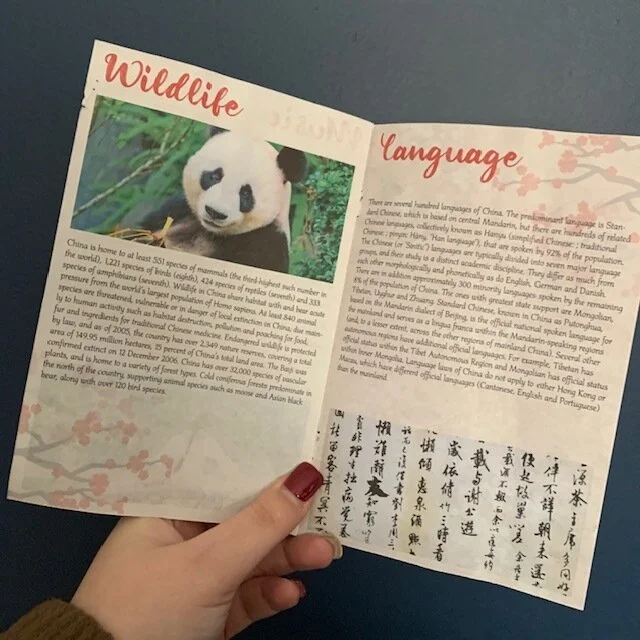 Wildlife
China is home to at least 551 species of mammals (the third-highest such number in
the world), 1,221 species of birds (eighth), 424 species of reptiles (seventh) and 333
species of amphibians (seventh). Wildlife in China share habitat with and bear acute
pressure from the world's largest population of Homo sapiens. At least 840 animal
species are threatened, vulnerable or in danger of local extinction in China, due main-
ly to human activity such as habitat destruction, pollution and poaching for food,
fur and ingredients for traditional Chinese medicine. Endangered wildlife is protected
by law, and as of 2005, the country has over 2,349 nature reserves, covering a total
area of 149.95 million hectares, 15 percent of China's total land area. The Baiji was
confirmed extinct on 12 December 2006. China has over 32,000 species of vascular
plants, and is home to a variety of forest types. Cold coniferous forests predominate in
the north of the country, supporting animal species such as moose and Asian black
bear, along with over 120 bird species.
Language
There are several hundred languages of China. The predominant language is Stan-
dard Chinese, which is based on central Mandarin, but there are hundreds of related
Chinese languages, collectively known as Hanyu (simplified Chinese: ; traditional
Chinese: ; pinyin: Hànyǔ, "Han language"), that are spoken by 92% of the population.
The Chinese (or "Sinitic") languages are typically divided into seven major language
groups, and their study is a distinct academic discipline. They differ as much from
each other morphologically and phonetically as do English, German and Danish.
There are in addition approximately 300 minority languages spoken by the remaining
8% of the population of China. The ones with greatest state support are Mongolian,
Tibetan, Uyghur and Zhuang. Standard Chinese, known in China as Putonghua,
based on the Mandarin dialect of Beijing, is the official national spoken language for
the mainland and serves as a lingua franca within the Mandarin-speaking regions
(and, to a lesser extent, across the other regions of mainland China). Several other
autonomous regions have additional official languages. For example, Tibetan has
official status within the Tibet Autonomous Region and Mongolian has official status
within Inner Mongolia. Language laws of China do not apply to either Hong Kong or
Macau, which have different official languages (Cantonese, English and Portuguese)
than the mainland.